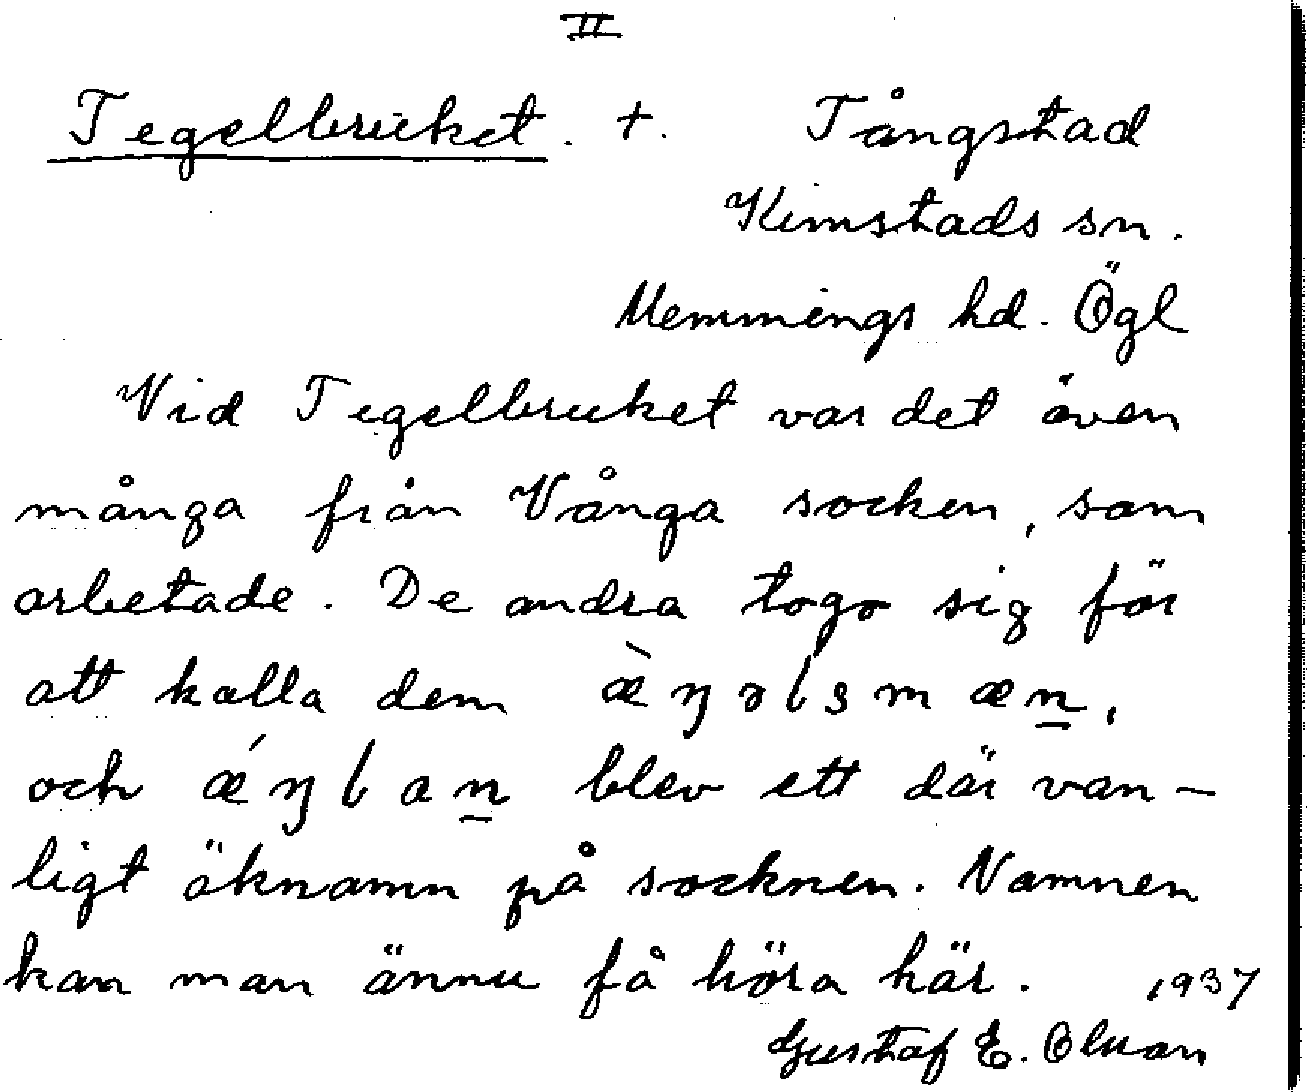 II
Tegelbruket. +. Tångstad
Kimstads sn.
Memmings hd. Ögl
Vid Tegelbruket var det även
många från Vånga socken, som
arbetade. De andra togo sig för
att kalla dem æ̀ŋəlsmæn̲,
och ǽŋlan̲ blev ett där van-
ligt öknamn på socknen. Namnen
kan man ännu få höra här. 1937
Gustaf E.